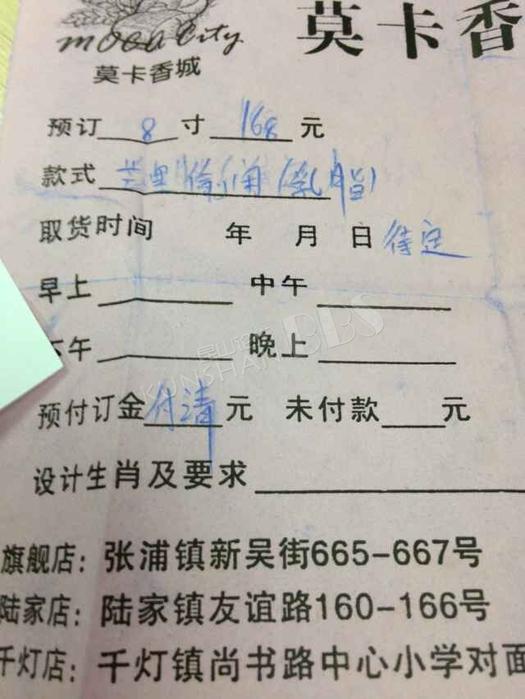 MOCA City
莫卡香
莫卡香城
预订 8 寸 168 元
款式 芒里偷闲(乳脂)
取货时间 年 月 日 待定
早上 中午
午 晚上
预付订金 付清 元 未付款 元
设计生肖及要求
旗舰店：张浦镇新吴街665-667号
陆家店：陆家镇友谊路160-166号
千灯店：千灯镇尚书路中心小学对面
KUNSHAN BBS